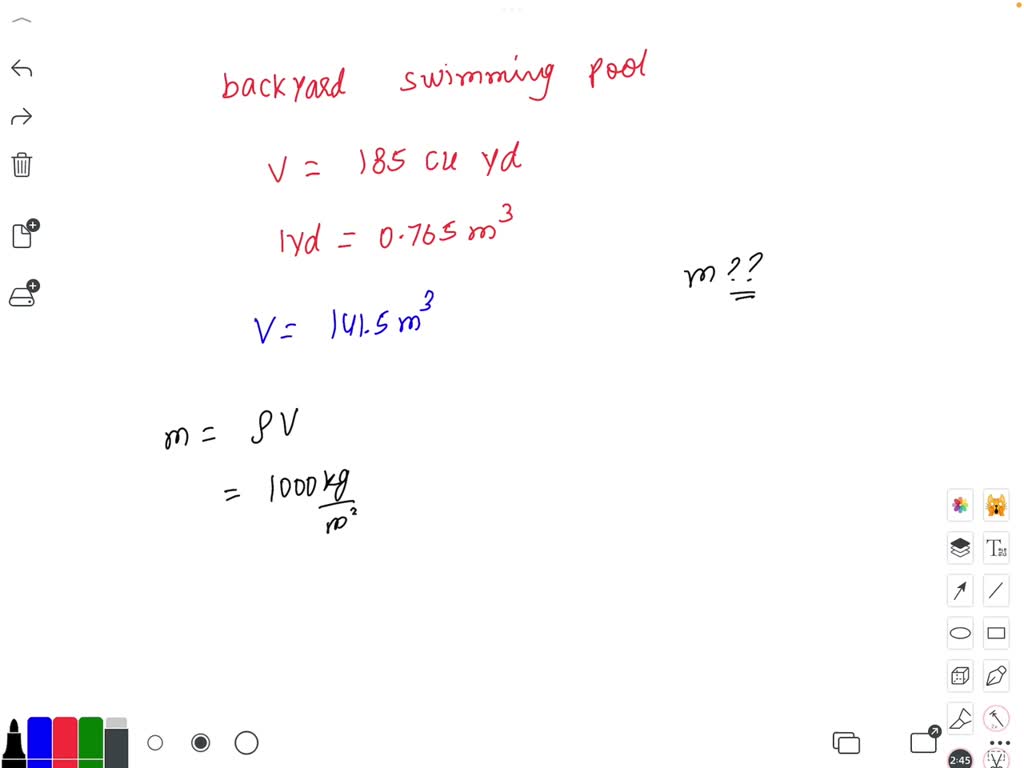 backyard swimming pool
V = 185 cu yd
1yd = 0.765 m³
m??
V = 141.5 m³
m = ρV
= 1000 kg/m²
2:45